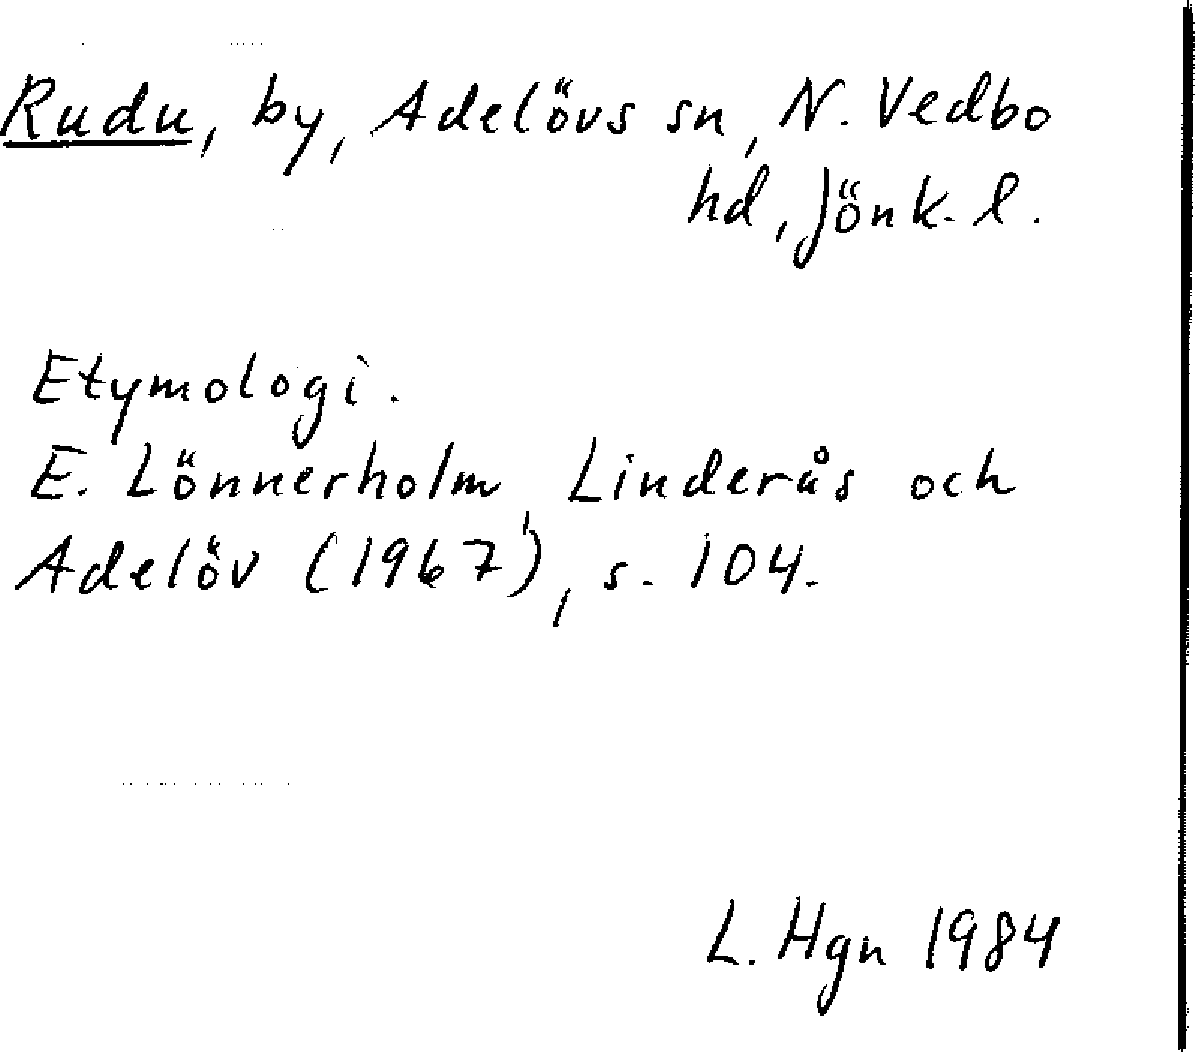 Rudu, by, Adelövs sn, N. Vedbo
hd, Jönk. l.
Etymologi.
E. Lönnerholm, Linderås och
Adelöv (1967), s. 104.
L. Hgn 1984